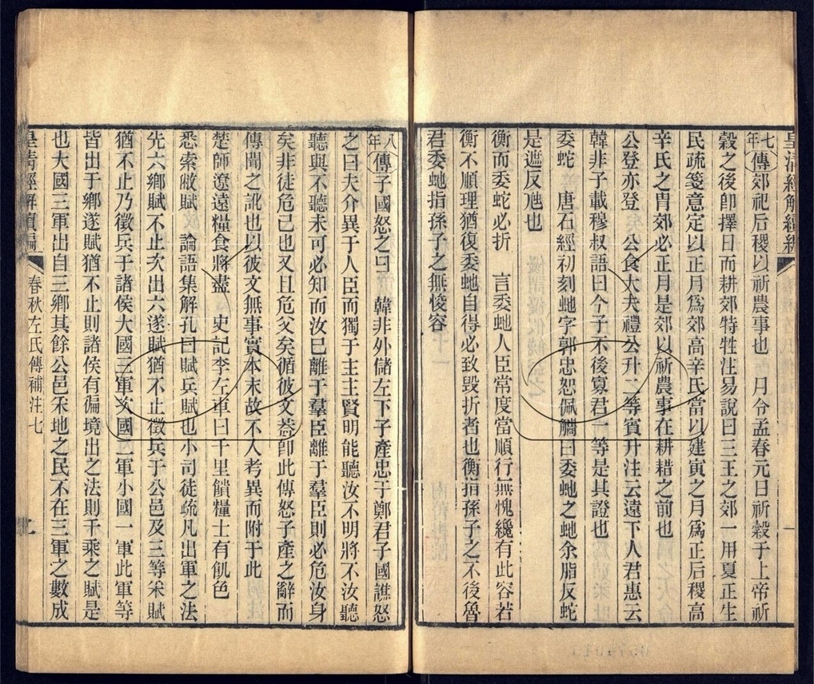 七年傳郊祀后稷以祈農事也　月令孟春元日祈穀于上帝祈
穀之後卽擇日而耕郊特牲注易說曰三王之郊一用夏正生
民疏箋意定以正月爲郊高辛氏當以建寅之月爲正后稷高
辛氏之冑郊必正月是郊以祈農事在耕耤之前也
公登亦登　公食大夫禮公升二等賓升注云遠下人君惠云
韓非子載穆叔語曰今子不後寡君一等是其證也
委蛇　唐石經初刻虵字郭忠恕佩觿曰委虵之虵余脂反蛇
是遮反虵也
衡而委蛇必折　言委虵人臣常度當順行無愧纔有此容若
衡不順理猶復委虵自得必致毀折者也衡指孫子之不後魯
君委虵指孫子之無悛容
八年傳子國怒之曰　韓非外儲左下子產忠于鄭君子國譙怒
之曰夫介異于人臣而獨于主主賢明能聽汝不明將不汝聽
聽與不聽未可必知而汝已離于羣臣離于羣臣則必危汝身
矣非徒危己也又且危父矣循彼文葢卽此傳怒子產之辭而
傳聞之訛也以彼文無事實本末故不入考異而附于此
楚師遼遠糧食將盡　史記李左車曰千里餽糧士有飢色
悉索敝賦　論語集解孔曰賦兵賦也小司徒疏凡出軍之法
先六鄉賦不止次出六遂賦猶不止徵兵于公邑及三等采賦
猶不止乃徵兵于諸侯大國三軍次國二軍小國一軍此軍等
皆出于鄉遂賦猶不止則諸侯有徧境出之法則千乘之賦是
也大國三軍出自三鄉其餘公邑采地之民不在三軍之數成
皇淸經解續編
春秋左氏傳補注七